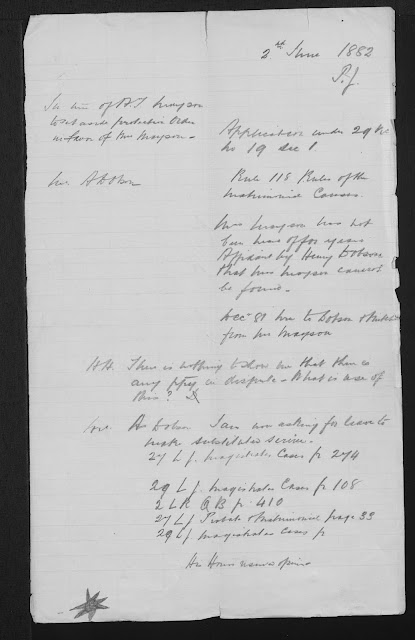 2nd June 1882
P.J.
In re of H.J. Mayson
to set aside protection order
in favor of Mrs Mayson -
Application under 29 Vic
No 19 Sec 1
Mr. A Dobson
Rule 118 Rules of the
Matrimonial Causes.
Mrs Mayson has not
been heard of for years
Affidavit by Henry Dobson
that Mrs Mayson cannot
be found -
Decr 81 to Dobson
from Mr Mayson
HH. There is nothing to show me that there is
any ppty in dispute - What is use of
this?
Mr. A Dobson I am now asking for leave to
make substituted service.
27 L J. Magistrates Cases p 274
29 L J. Magistrates Cases p 108
2 LR QB p. 410
27 LJ Probate & Matrimonial page 33
29 LJ Magistrates Cases p
His Honor